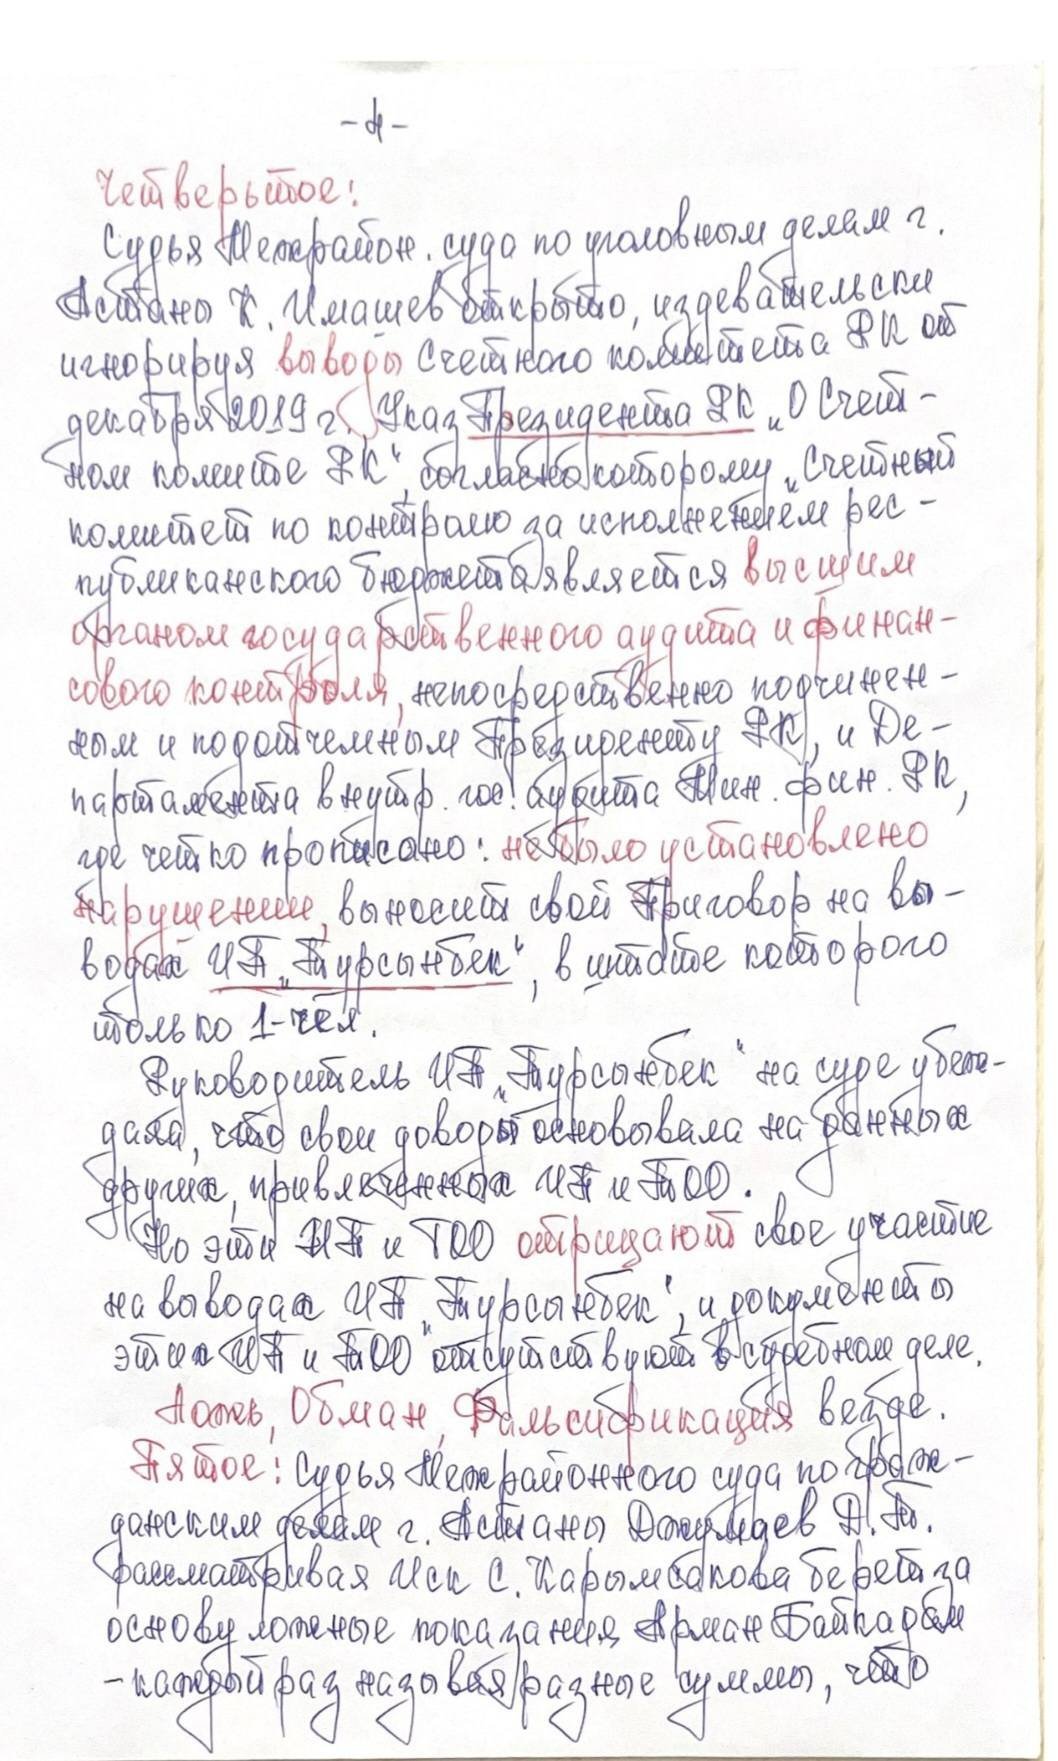 -4-
Четверьтое:
Судья Межрайон. суда по уголовным делам г.
Астаны К. Имашев открыто, издевательски
игнорируя выводы Счетного комитета РК от
декабря 2019 г., Указ Президента РК „О Счет-
ном комите РК", согласно которому „Счетный
комитет по контролю за исполнением рес-
публиканского бюджета является высшим
органом государственного аудита и финан-
сового контроля, непосредственно подчинен-
ным и подотчетным Президенту РК, и Де-
партамента внутр. гос. аудита Мин. фин. РК,
где четко прописано: не было установлено
нарушении, выносит свой Приговор на вы-
водах ИП „Турсынбек", в штате которого
только 1-чел.
Руководитель ИП „Турсынбек" на суде убеж-
дала, что свои доводы основывала на данных
других, привлеченных ИП и ТОО.
Но эти ИП и ТОО отрицают свое участие
на выводах ИП „Турсынбек", и документы
этих ИП и ТОО отсутствуют в судебном деле.
Ложь, Обман, Фальсификация везде.
Пятое: Судья Межрайонного суда по граж-
данским делам г. Астаны Джумаев Д.Т.
рассматривая Иск С. Карымсакова берет за
основу ложные показания Арман Байкадам
- каждый раз называя разные суммы, что